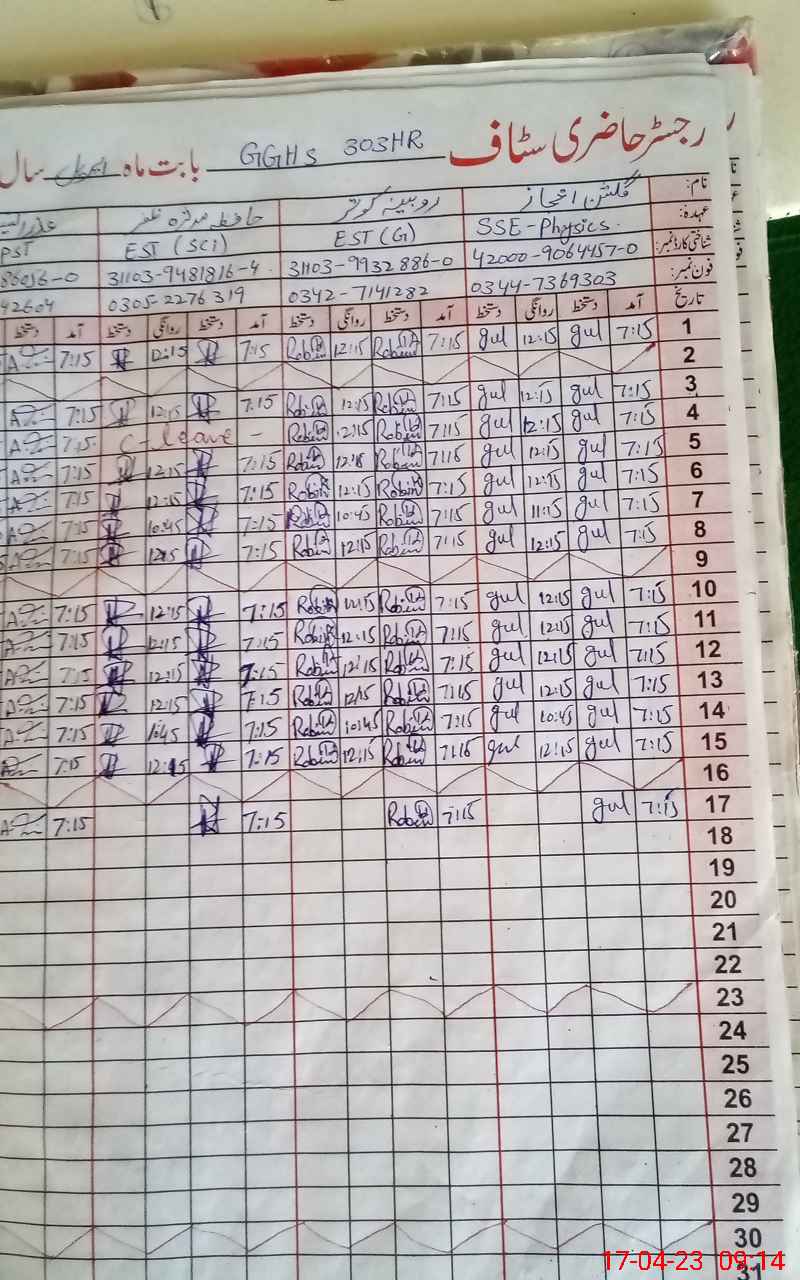 رجسٹر حاضری سٹاف GGHS 303HR بابت ماہ اپریل سال
نام: گلشن اعجاز روبینہ کوثر حافظہ مدثرہ ظفر
عہدہ: SSE-Physics. EST (G) EST (SCi) PST
شناختی کارڈ نمبر: 42000-9064457-0 31103-9932886-0 31103-9481816-4 86056-0
فون نمبر: 0344-7369303 0342-7141282 0305-2276319 42604
تاریخ آمد دستخط روانگی دستخط آمد دستخط روانگی دستخط آمد دستخط روانگی دستخط آمد دستخط
1 7:15 gul 12:15 gul 7:15 Robina 12:15 Robina 7:15 12:15 7:15
2
3 7:15 gul 12:15 gul 7:15 Robina 12:15 Robina 7:15 12:15 7:15
4 7:15 gul 12:15 gul 7:15 Robina 12:15 Robina - C-leave 7:15
5 7:15 gul 12:15 gul 7:15 Robina 12:15 Robina 7:15 12:15 7:15
6 7:15 gul 12:15 gul 7:15 Robina 12:15 Robina 7:15 12:15 7:15
7 7:15 gul 11:15 gul 7:15 Robina 10:45 Robina 7:15 10:45 7:15
8 7:15 gul 12:15 gul 7:15 Robina 12:15 Robina 7:15 12:15 7:15
9
10 7:15 gul 12:15 gul 7:15 Robina 12:15 Robina 7:15 12:15 7:15
11 7:15 gul 12:15 gul 7:15 Robina 12:15 Robina 7:15 12:15 7:15
12 7:15 gul 12:15 gul 7:15 Robina 12:15 Robina 7:15 12:15 7:15
13 7:15 gul 12:15 gul 7:15 Robina 12:15 Robina 7:15 12:15 7:15
14 7:15 gul 10:45 gul 7:15 Robina 10:45 Robina 7:15 7:15
15 7:15 gul 12:15 gul 7:15 Robina 12:15 Robina 7:15 12:15 7:15
16
17 7:15 gul 7:15 Robina 7:15 7:15
18
19
20
21
22
23
24
25
26
27
28
29
30
31
17-04-23 09:14